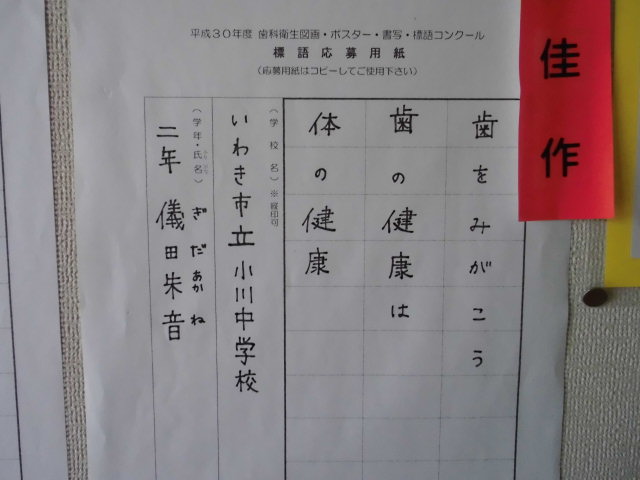 平成30年度 歯科衛生図画・ポスター・書写・標語コンクール
標語応募用紙
(応募用紙はコピーしてご使用下さい)
佳作
歯をみがこう
歯の健康は
体の健康
(学校名)※縦印可
いわき市立小川中学校
(学年・氏名)
二年 儀田朱音
ぎだあかね